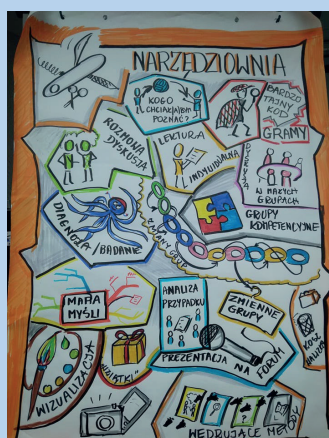 NARZĘDZIOWNIA
KOGO
CHCIAŁ(A)BYM
POZNAĆ?
BARDZO
TAJNY
KOD
GRAMY
ROZMOWA
DYSKUSJA
LEKTURA
INDYWIDUALNA
DYSKUSJA
W MAŁYCH
GRUPACH
DIAGNOZA/BADANIE
ZMIANY GRUP
GRUPY
KOMPETENCYJNE
MAPA
MYŚLI
ANALIZA
PRZYPADKU
ZMIENNE
GRUPY
WIZUALIZACJA
PREZENTACJA NA FORUM
KOŚĆ
WĘDRUJĄCE